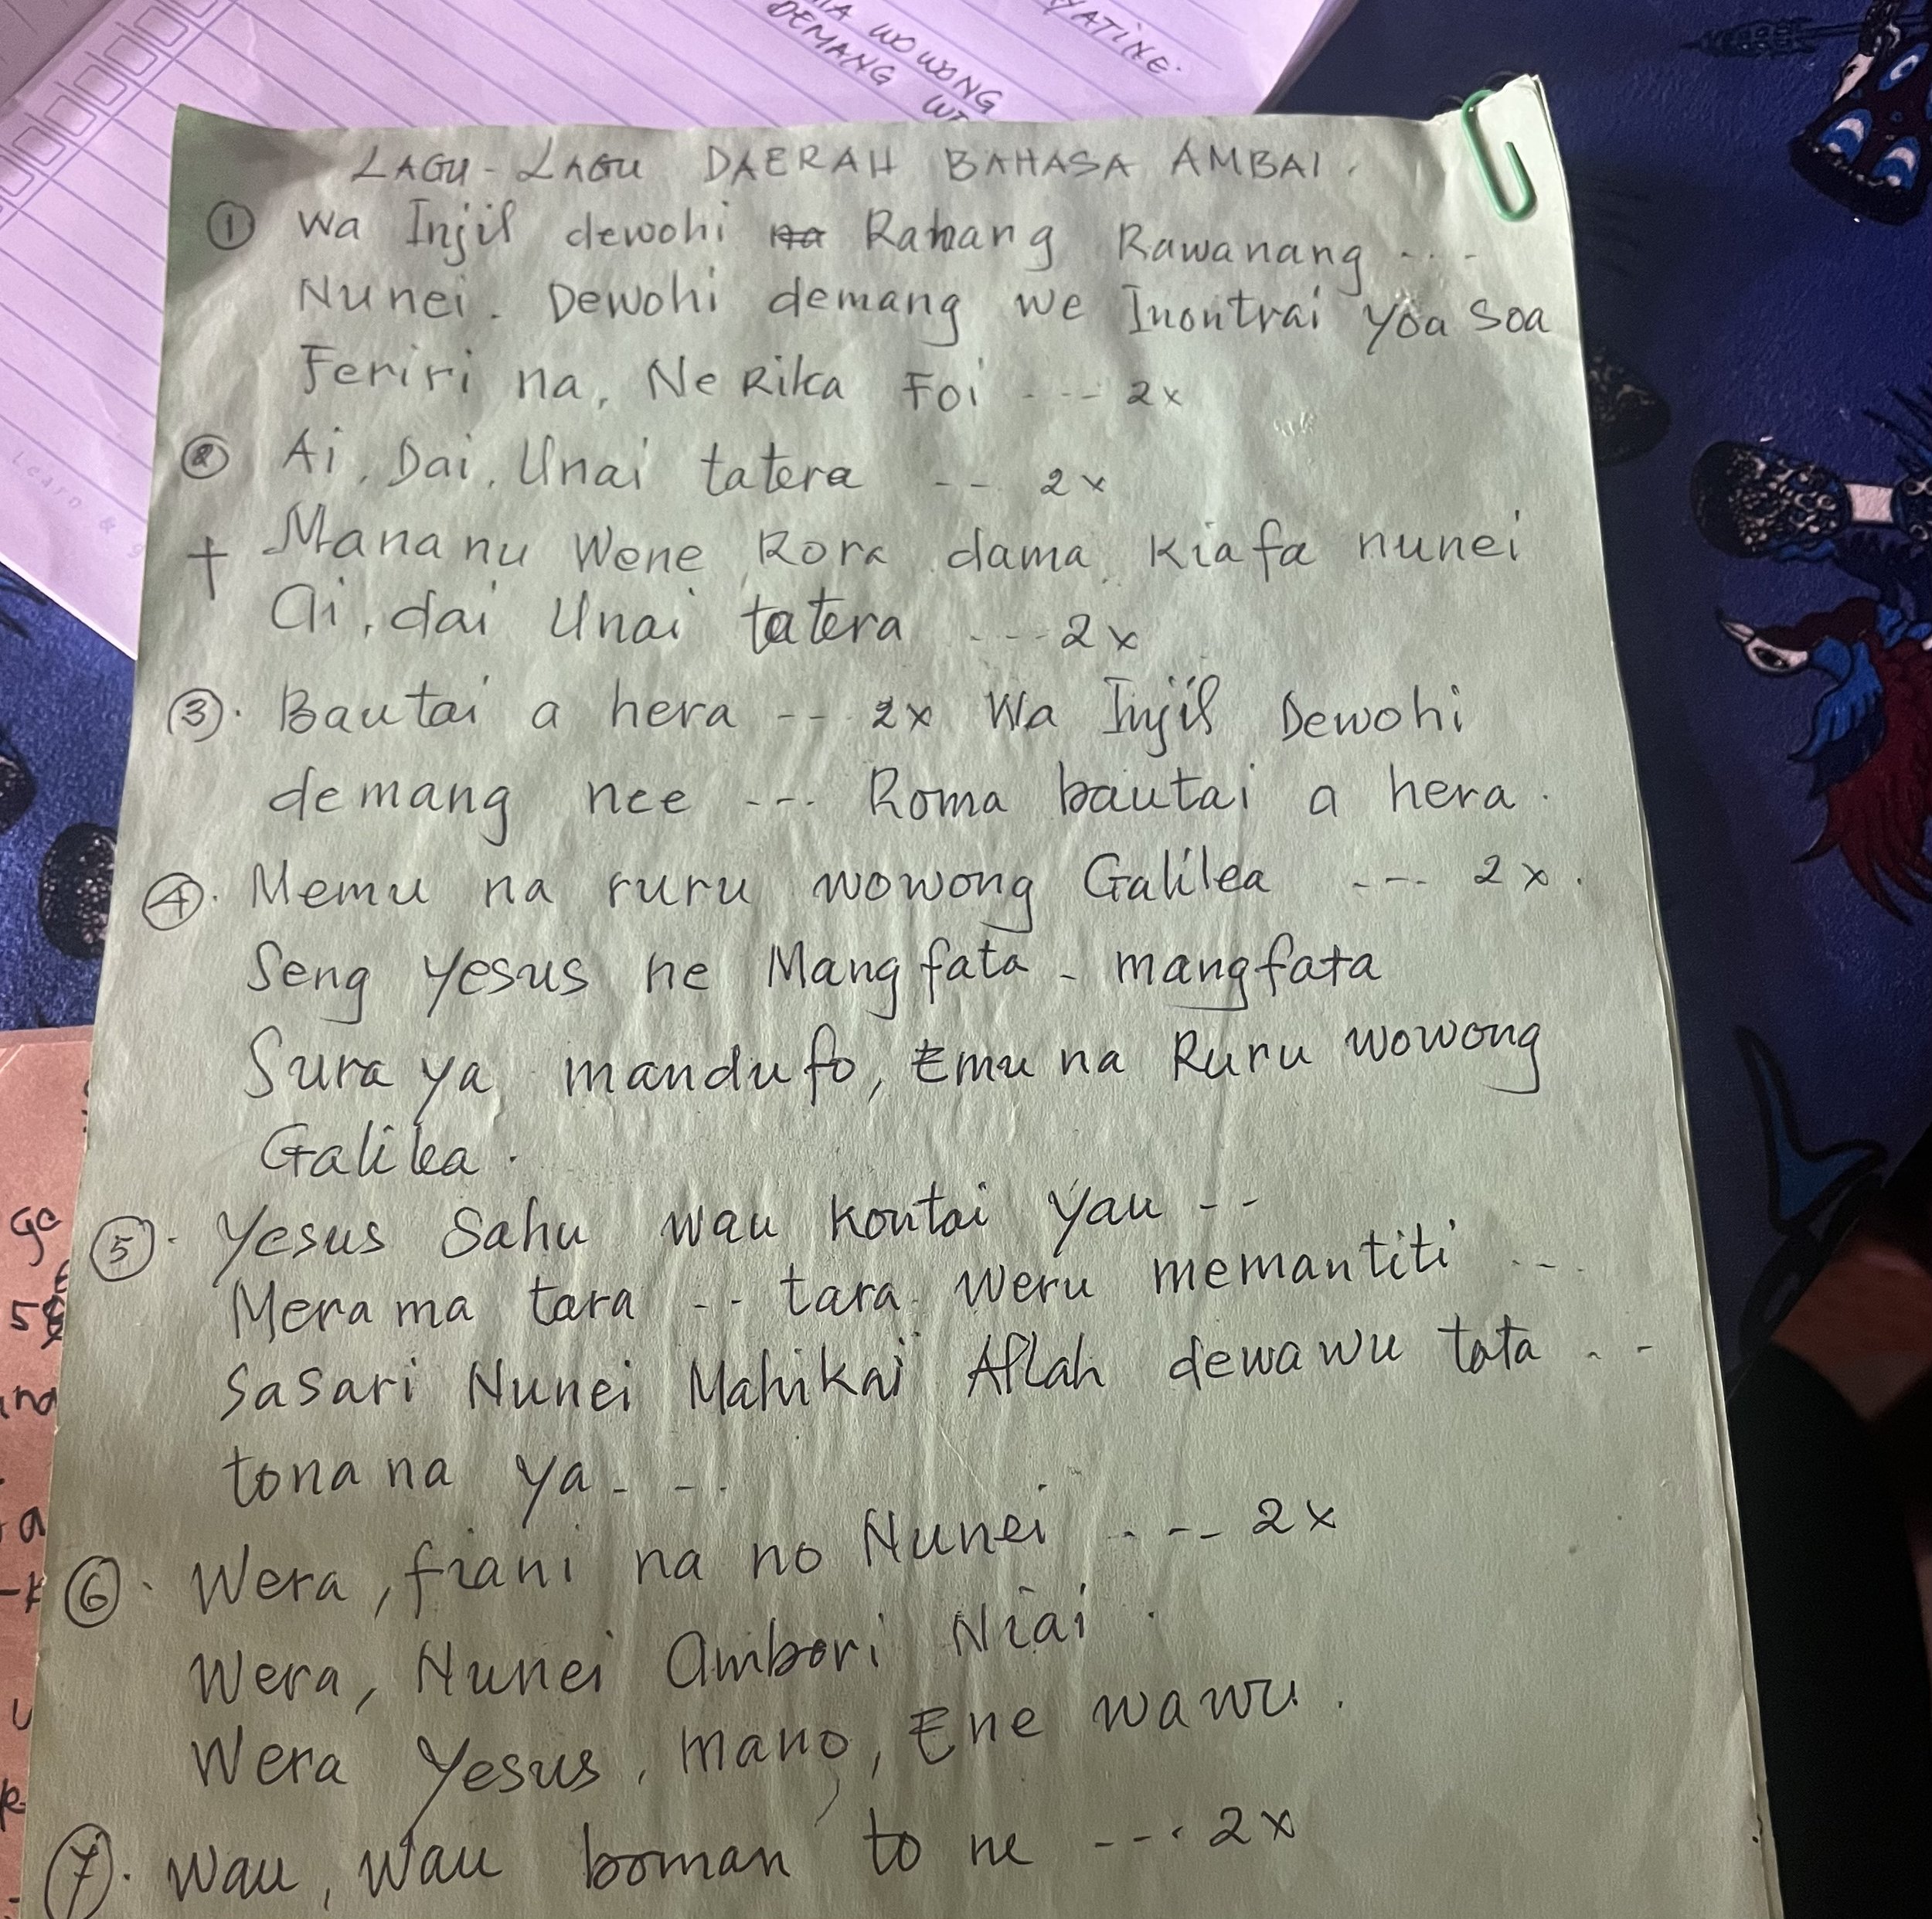 IA WOWONG
DEMANG
YATINE.
Learn &
LAGU-LAGU DAERAH BAHASA AMBAI.
① Wa Injil dewohi na Rahang Rawanang ...
Nunei. Dewohi demang we Inontrai yoa soa
Feriri na, Ne Rika Foi ---- 2x
② Ai, Dai, Unai tatera -- 2x
+ Mananu Wene Rora dama, Kiafa nunei
Ai, dai Unai tatera --- 2x
③. Bautai a hera -- 2x Wa Injil Dewohi
demang nee --- Roma bautai a hera.
④. Memu na ruru wowong Galilea --- 2x.
Seng Yesus ne Mangfata - mangfata
Sura ya mandufo, Emu na Ruru wowong
Galilea.
⑤. Yesus Sahu wau kontai yau --
Merama tara -- tara weru memantiti ...
Sasari Nunei Mahikai Allah dewawu tata --
tonana ya - - -
⑥. Wera, fiani na no Nunei ---- 2x
Wera, Nunei Ambori Niai.
Wera Yesus, mano, Ene wawu.
⑦. Wau, Wau boman to ne ---. 2x